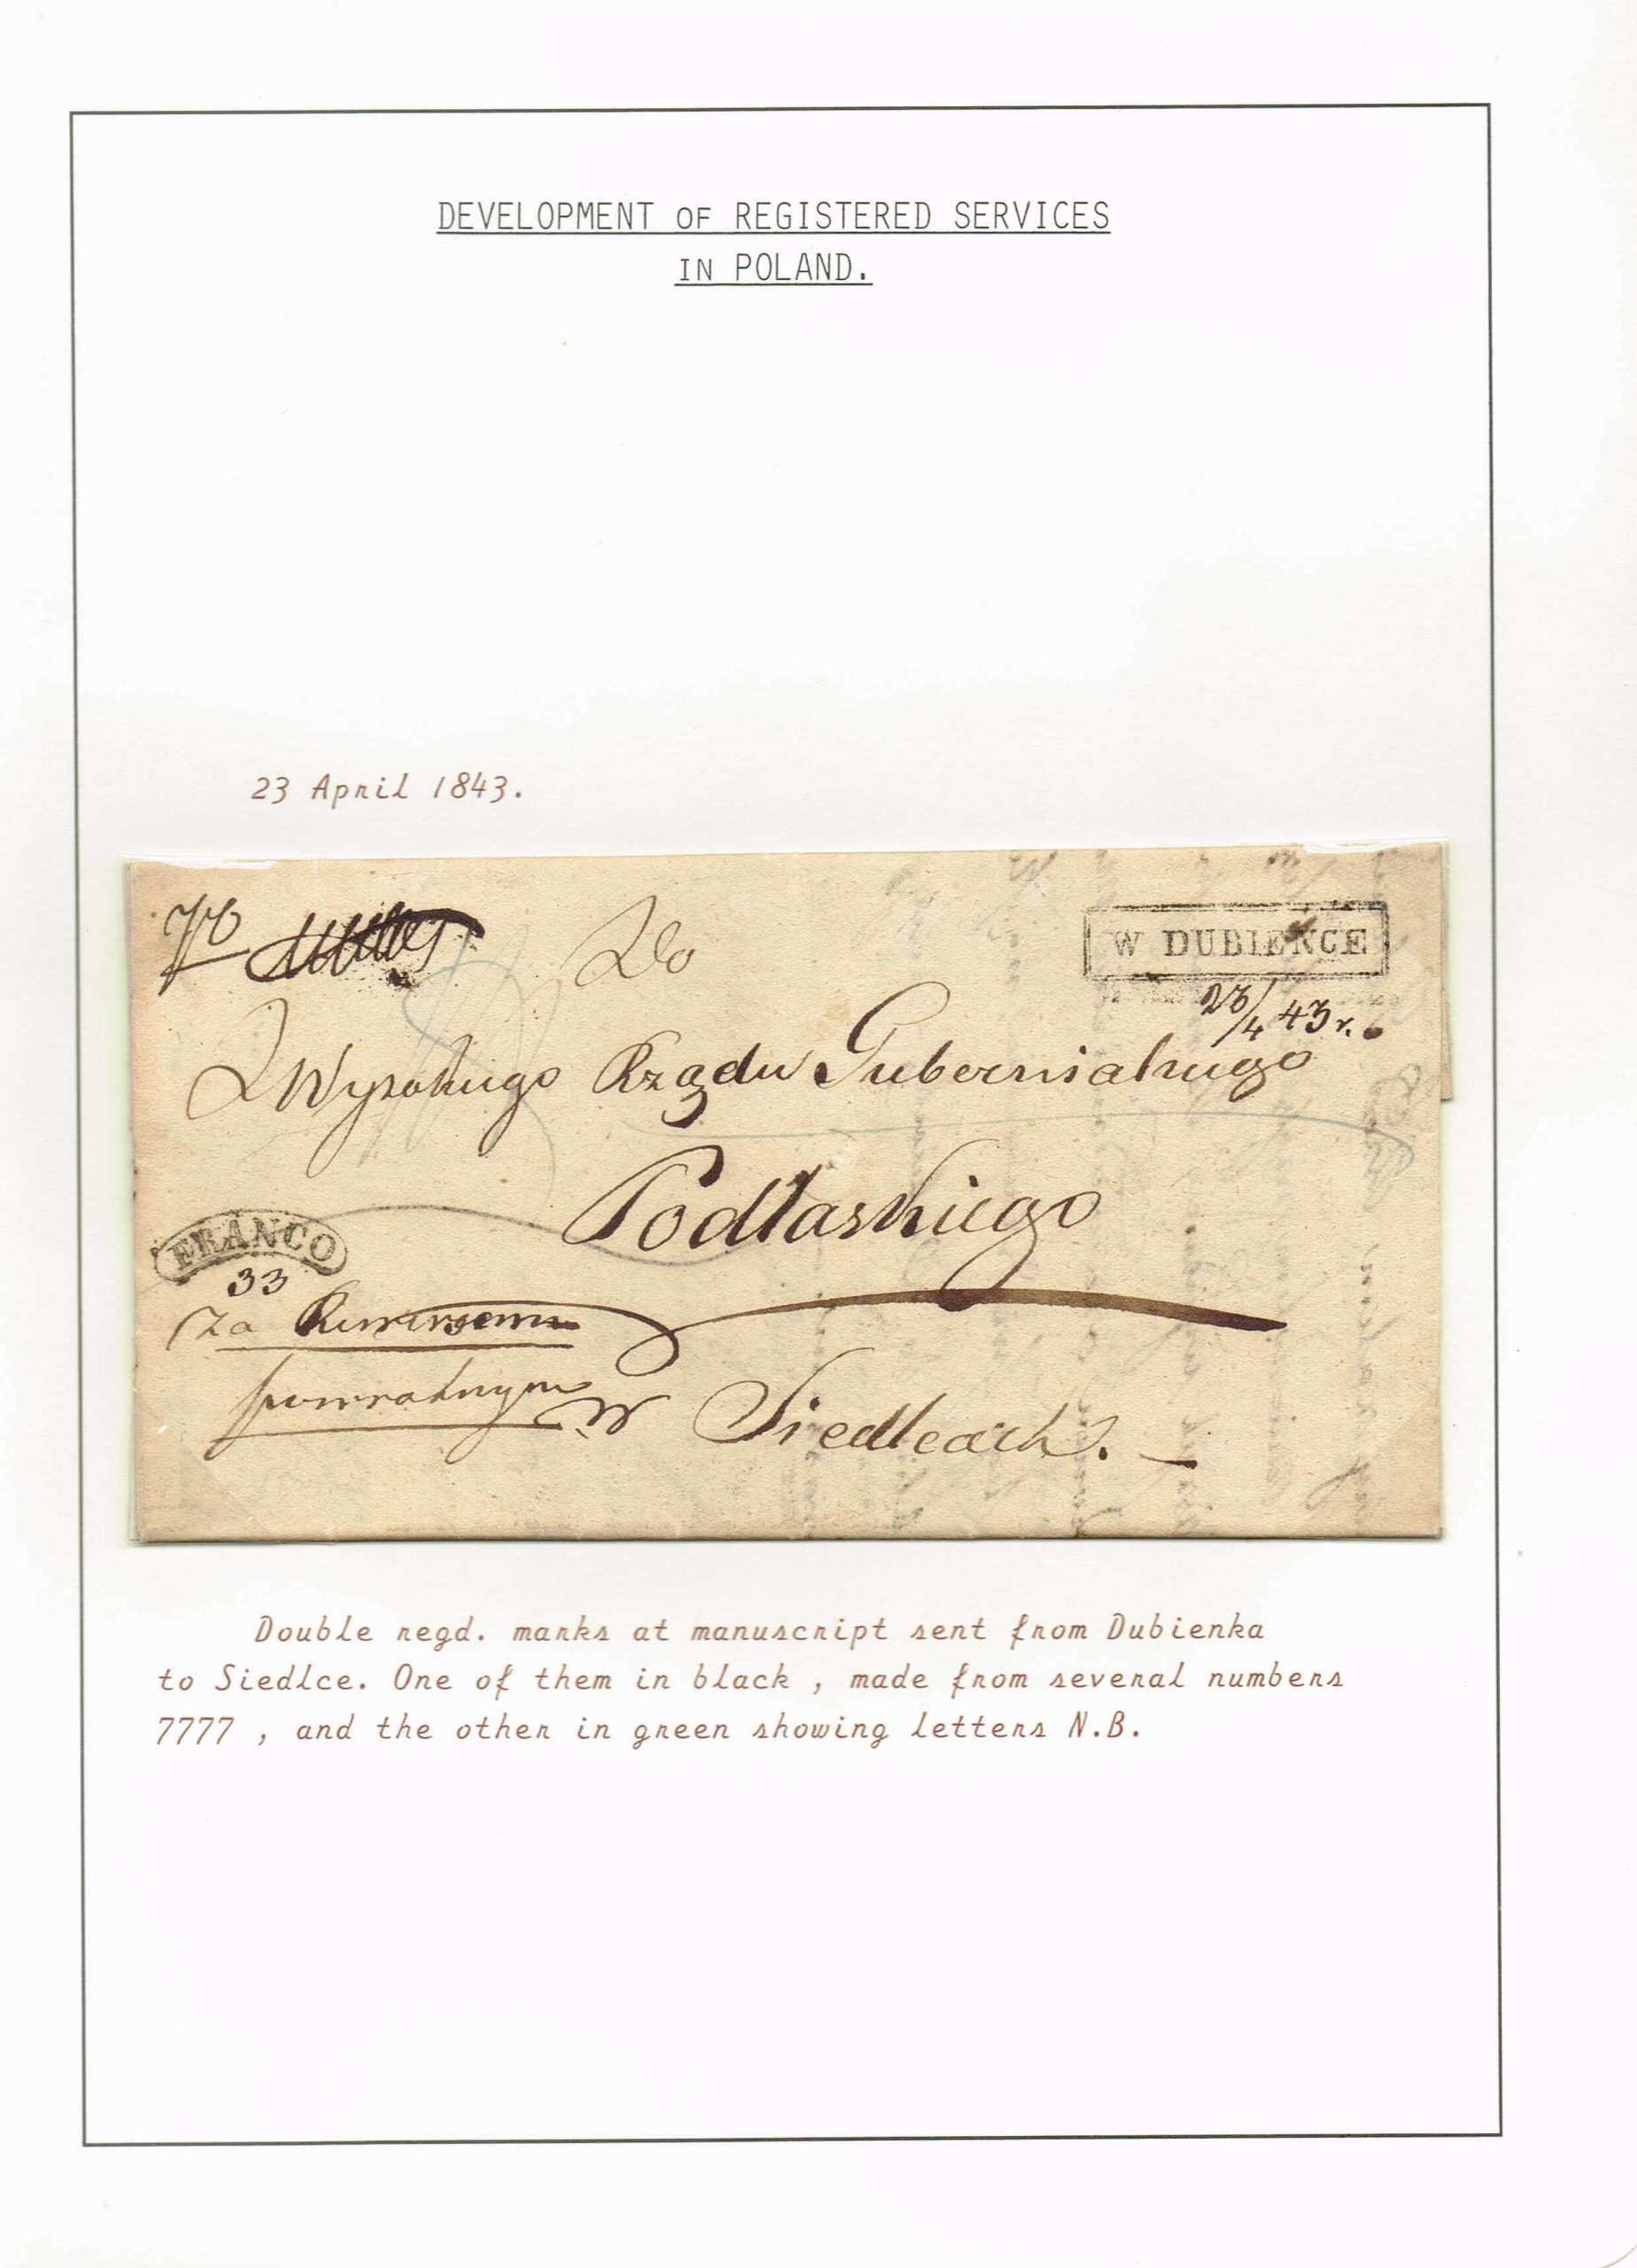 DEVELOPMENT OF REGISTERED SERVICES
IN POLAND.
23 April 1843.
Do
W DUBIENCE
23/4 43 r.
JWysokiego Rządu Gubernialnego
Podlaskiego
FRANCO
33
Za Rewersem
powrotnym
w Siedlcach.
Double regd. marks at manuscript sent from Dubienka
to Siedlce. One of them in black , made from several numbers
7777 , and the other in green showing letters N.B.